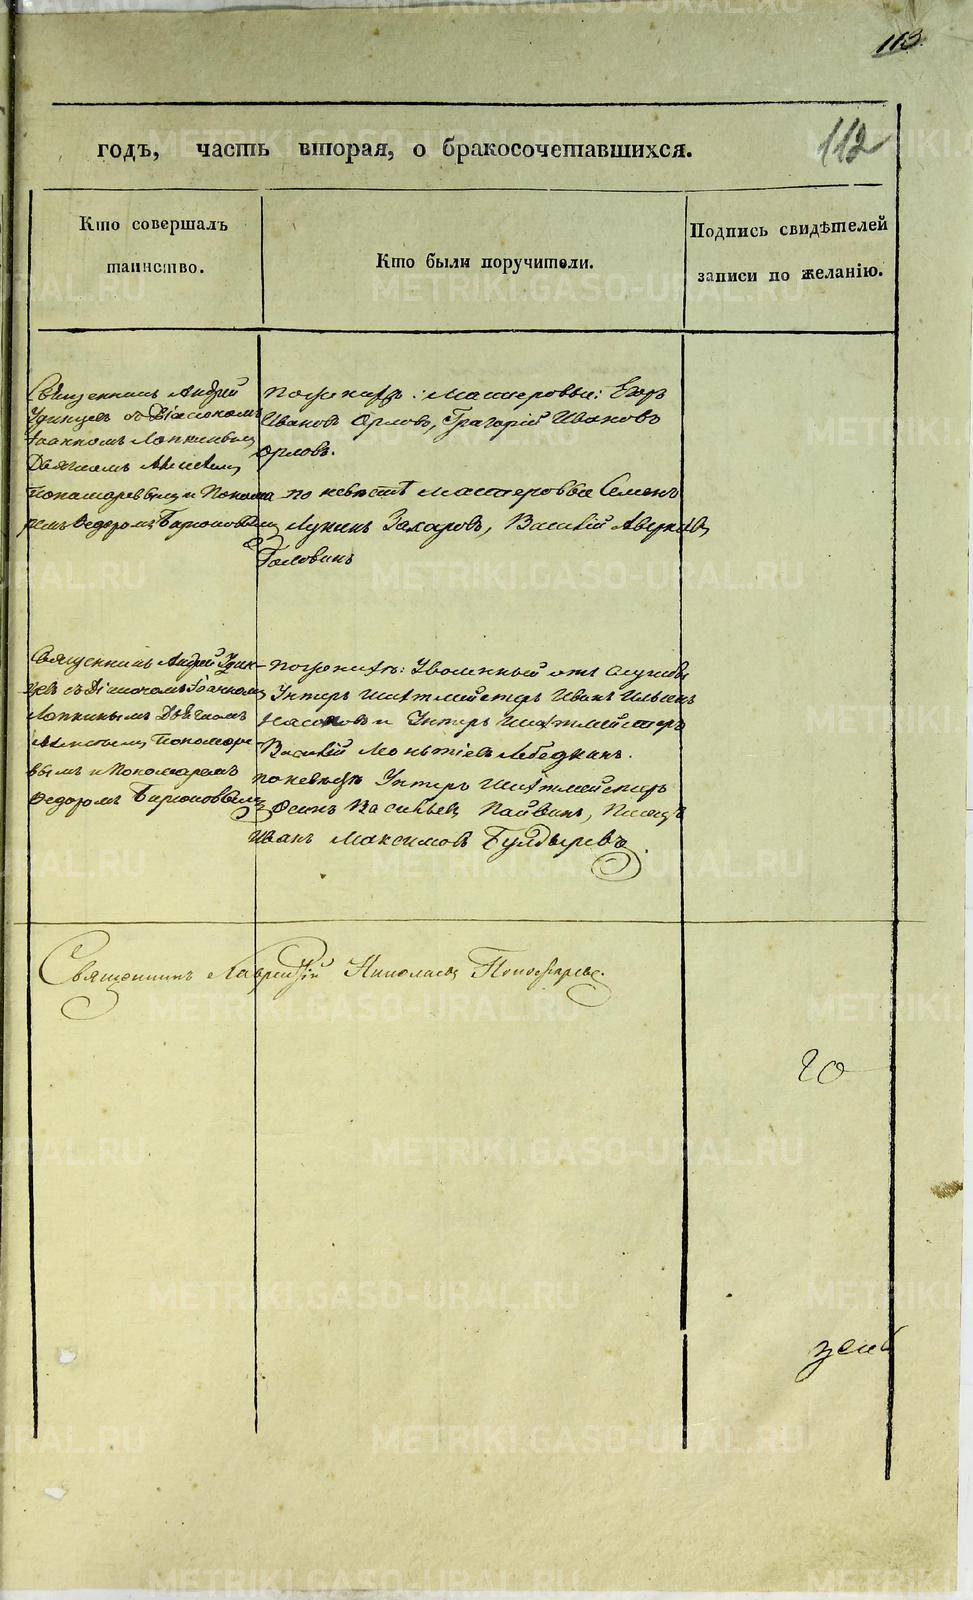 113.
112
годъ, часть вторая, о бракосочетавшихся.
Кто совершалъ
таинство.
Кто были поручители.
Подпись свидѣтелей
записи по желанію.
Священникъ Андрей
Удинцевъ съ Діакономъ
Іоанномъ Лопкинымъ
Дьячкомъ Алексѣемъ
Пономаревымъ и Понома
ремъ Ѳедоромъ
по женихѣ: Мастеровые: Егоръ
Ивановъ Орловъ, Григорій Ивановъ
Орловъ.
по невѣстѣ Мастеровые Семенъ
Лукинъ Захаровъ, Василій
Головинъ
Священникъ Андрей Удин-
цевъ съ Діакономъ Іоанномъ
Лопкинымъ Дьячкомъ
Алексѣемъ Пономаре
вымъ и Пономаремъ
Ѳедоромъ
по женихѣ: Уволенный отъ службы
Унтеръ Шихтмейстеръ Иванъ Ильинъ
и Унтеръ Шихтмейстеръ
Василій Лебедкинъ.
по невѣстѣ Унтеръ Шихтмейстеръ
Осипъ Васильевъ Пайвинъ, Писецъ
Иванъ Максимовъ Булдыревъ.
Священникъ Лаврентій Николаевъ Пономаревъ.
20
METRIKI.GASO-URAL.RU